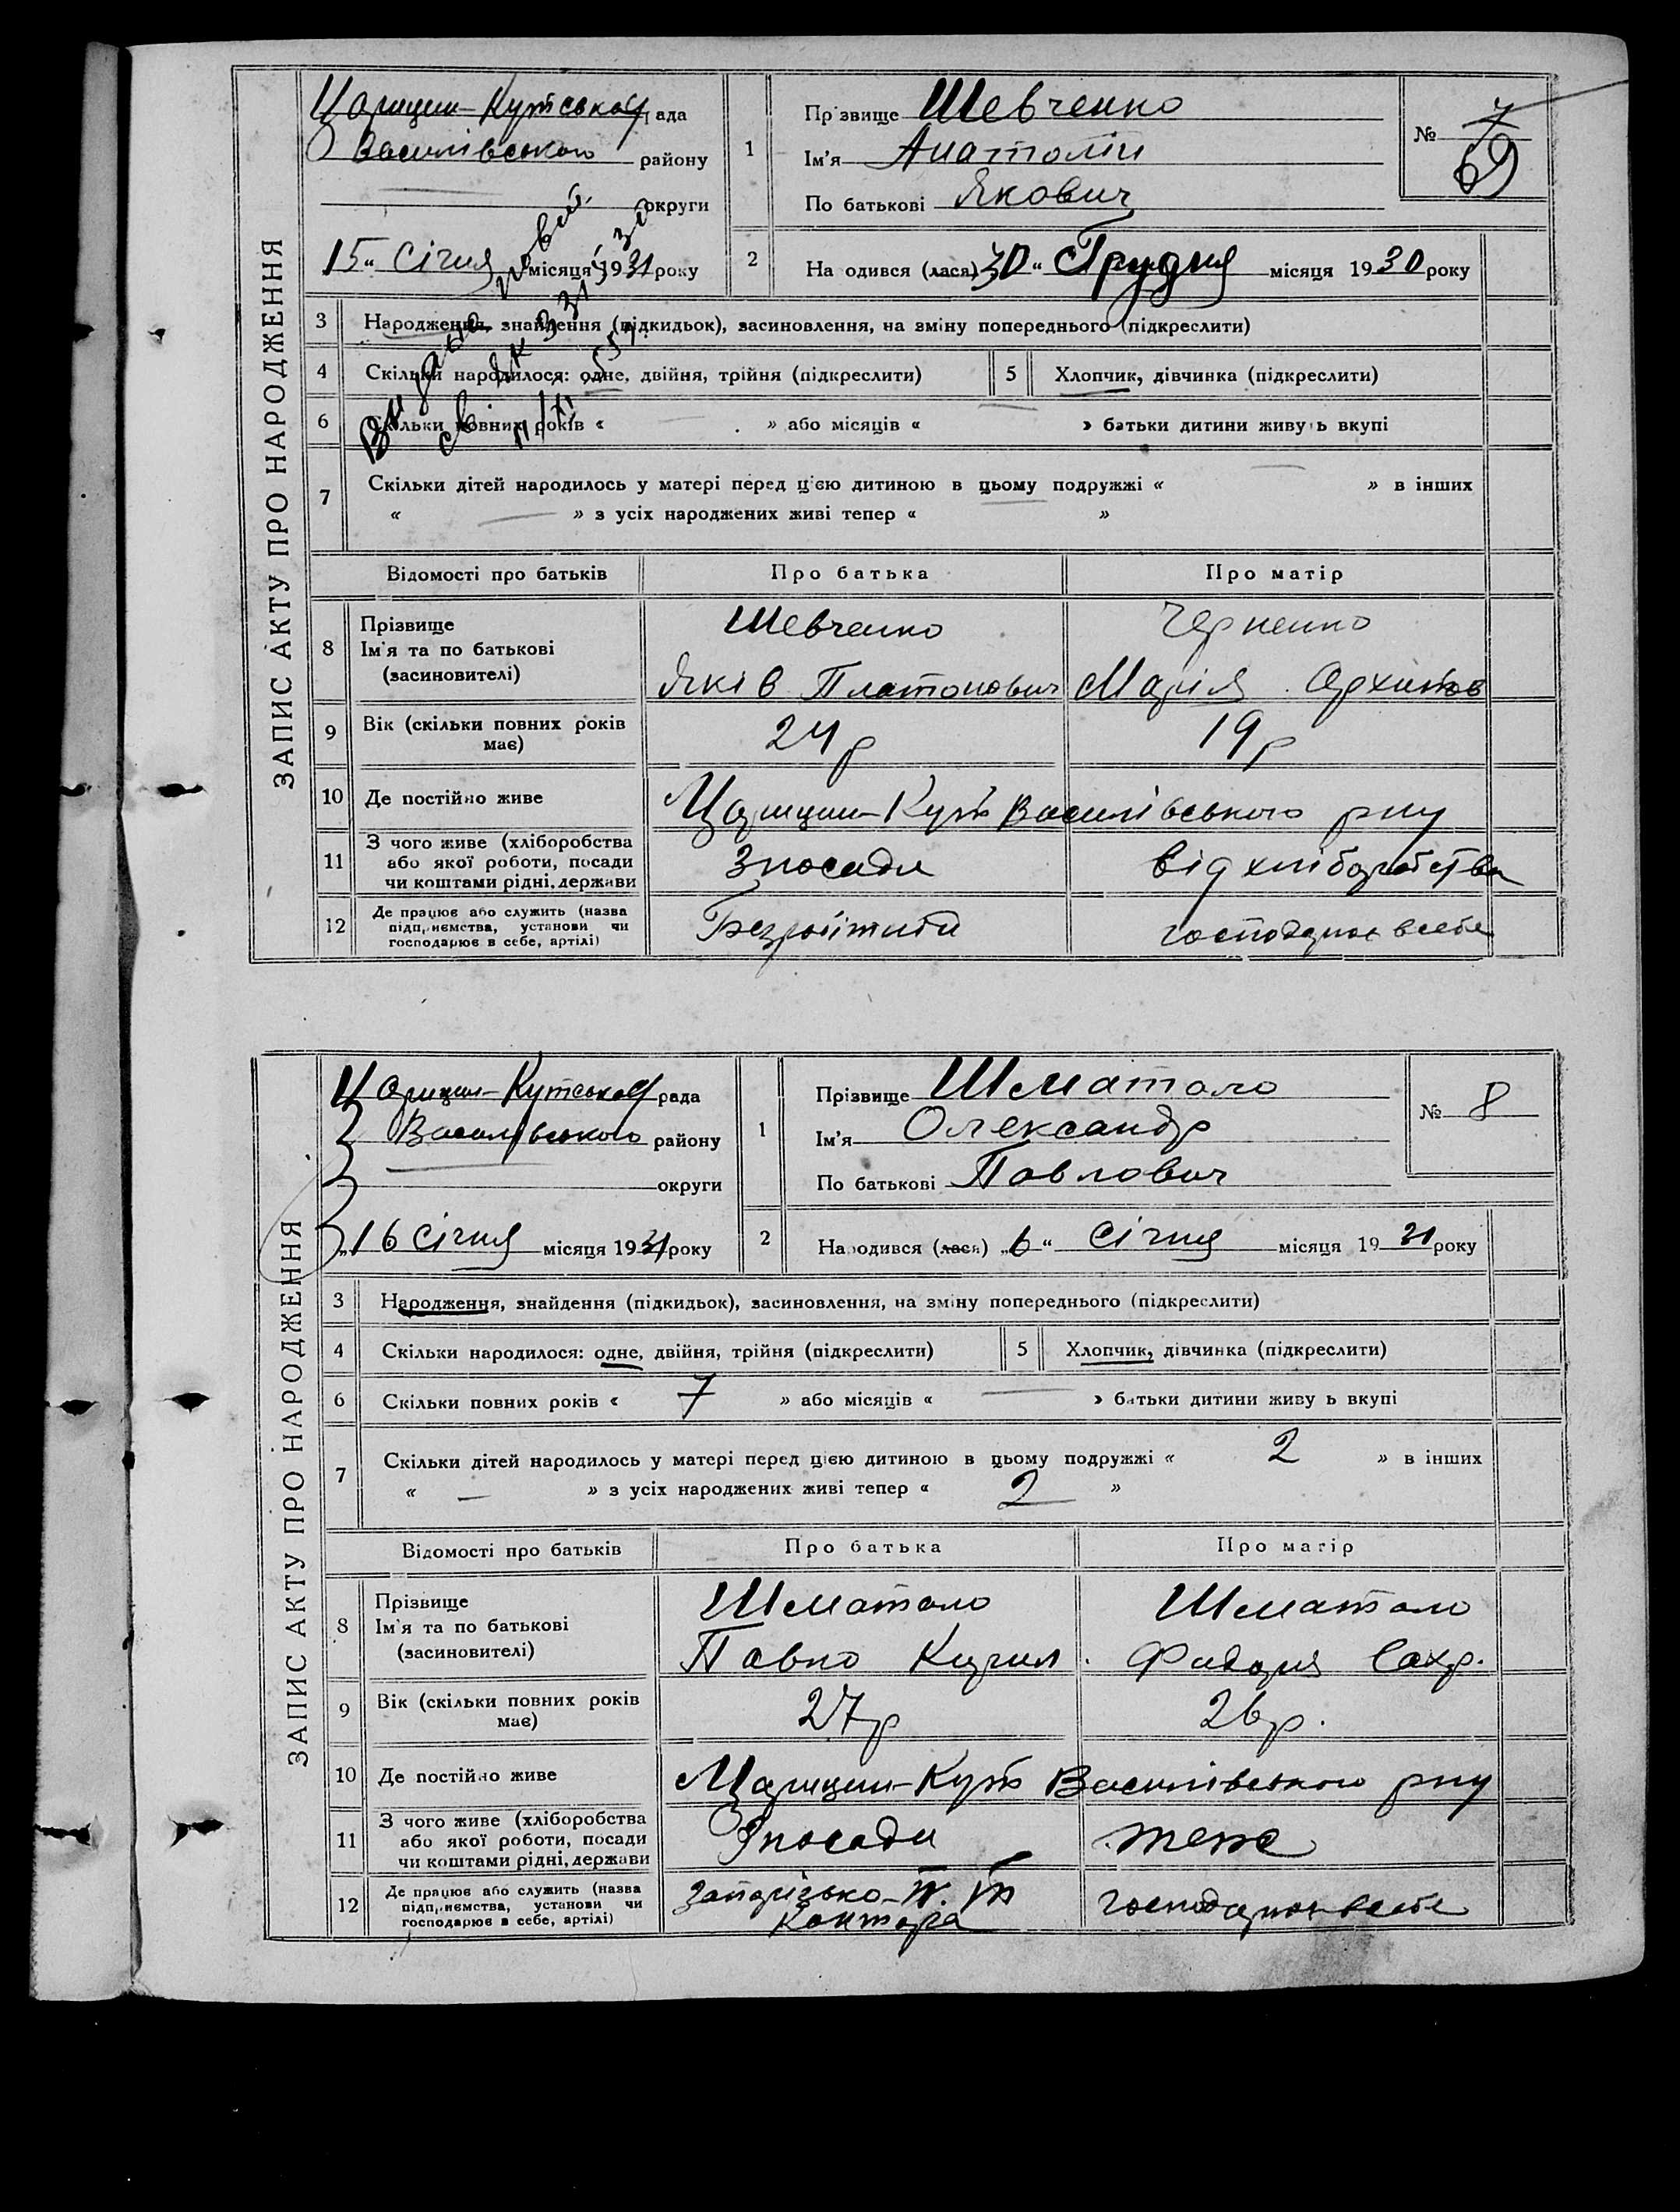 ЗАПИС АКТУ ПРО НАРОДЖЕННЯ
Царицин-Кутська рада
Василівського району
округи
15 " Січня місяця 1931 року
1
Прізвище Шевченко
Ім'я Анатолій
По батькові Якович
№ 7
69
2
Народився (лася) 30 " Грудня місяця 1930 року
3 Народження, знайдення (підкидьок), засиновлення, на зміну попереднього (підкреслити)
4 Скільки народилося: одне, двійня, трійня (підкреслити) 5 Хлопчик, дівчинка (підкреслити)
6 Скільки повних років « — » або місяців « — » батьки дитини живуть вкупі
7 Скільки дітей народилось у матері перед цією дитиною в цьому подружжі « — » в інших
« — » з усіх народжених живі тепер « »
Видано новий
св ЯК
Відомості про батьків Про батька Про матір
8 Прізвище
Ім'я та по батькові
(засиновителі)
Шевченко Черненко
Яків Платонович Марія Архипов
9 Вік (скільки повних років має) 24 р 19 р
10 Де постійно живе Царицин-Кут Василівського р-ну
11 З чого живе (хліборобства
або якої роботи, посади
чи коштами рідні, держави
З посади від хліборобства
12 Де працює або служить (назва
підприємства, установи чи
господарює в себе, артілі)
Безробітний господарює в себе
ЗАПИС АКТУ ПРО НАРОДЖЕННЯ
Царицин-Кутська рада
Василівського району
округи
„16 Січня місяця 1931 року
1
Прізвище Шматоло
Ім'я Олександр
По батькові Павлович
№ 8
2
Народився (лася) „6 " Січня місяця 1931 року
3 Народження, знайдення (підкидьок), засиновлення, на зміну попереднього (підкреслити)
4 Скільки народилося: одне, двійня, трійня (підкреслити) 5 Хлопчик, дівчинка (підкреслити)
6 Скільки повних років « 7 » або місяців « — » батьки дитини живуть вкупі
7 Скільки дітей народилось у матері перед цією дитиною в цьому подружжі « 2 » в інших
« — » з усіх народжених живі тепер « 2 »
Відомості про батьків Про батька Про матір
8 Прізвище
Ім'я та по батькові
(засиновителі)
Шматоло Шматоло
Павло Кирил. Фидория Сахр.
9 Вік (скільки повних років має) 27 р 26 р.
10 Де постійно живе Царицин-Кут Василівського р-ну
11 З чого живе (хліборобства
або якої роботи, посади
чи коштами рідні, держави
З посади теж
12 Де працює або служить (назва
підприємства, установи чи
господарює в себе, артілі)
Запорізько- контора господарює в себе